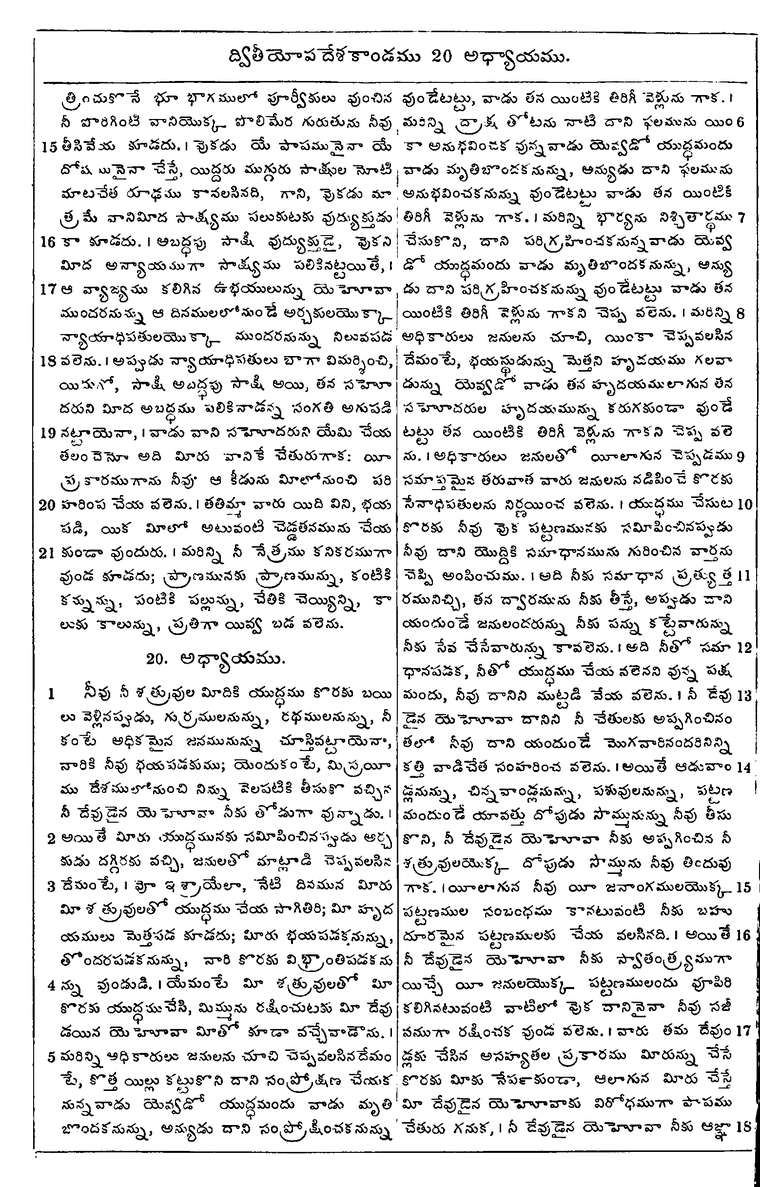 ద్వితీయోపదేశకాండము 20 అధ్యాయము.
త్రించుకొనే భూ భాగములో పూర్వీకులు వుంచిన
నీ పొరిగింటి వానియొక్క పొలిమేర గురుతును నీవు
15 తీసివేయ కూడదు. । వొకడు యే పాపమునైనా యే
దోషమునైనా చేస్తే, యిద్దరు ముగ్గురు సాక్షుల నోటి
మాటచేత రూఢము కానలసినది, గాని, వొకడు మా
త్రమే వానిమీద సాక్ష్యము పలుకుటకు వుద్యుక్తుడు
16 కా కూడదు. । అబద్ధపు సాక్షి వుద్యుక్తుడై, వొకని
మీద అన్యాయముగా సాక్ష్యము పలికినట్టయితే, ।
17 ఆ వ్యాజ్యము కలిగిన ఉభయులున్ను యెహోవా
ముందరనున్ను ఆ దినములలోనుండే అర్చకులయొక్కా
న్యాయాధిపతులయొక్కా ముందరనున్ను నిలువపడ
18 వలెను. । అప్పుడు న్యాయాధిపతులు బాగా విమర్శించి,
యిదుగో, సాక్షి అబద్ధపు సాక్షి అయి, తన సహో
దరుని మీద అబద్ధము పలికినాడన్న సంగతి అగుపడి
19 నట్టాయెనా, । వాడు వాని సహోదరుని యేమి చేయ
తలంచెనో అది మీరు వానికే చేతురుగాక: యీ
ప్రకారముగాను నీవు ఆ కీడును మీలోనుంచి పరి
20 హరింప చేయ వలెను. । తతిమ్మా వారు యిది విని, భయ
పడి, యిక మీలో అటువంటి చెడ్డతనమును చేయ
21 కుండా వుందురు. । మరిన్ని నీ నేత్రము కనికరముగా
వుండ కూడదు; ప్రాణమునకు ప్రాణమున్ను, కంటికి
కన్నున్ను, పంటికి పల్లున్ను, చేతికి చెయ్యిన్ని, కా
లుకు కాలున్ను, ప్రతిగా యివ్వ బడ వలెను.
20. అధ్యాయము.
1 నీవు నీ శత్రువుల మీదికి యుద్ధము కొరకు బయి
లు వెళ్లినప్పుడు, గుర్రములనున్ను, రథములనున్ను, నీ
కంటే అధికమైన జనమునున్ను చూస్తివట్టాయెనా,
వారికి నీవు భయపడకుము; యెందుకంటే, మిస్రయీ
ము దేశములోనుంచి నిన్ను వెలపటికి తీసుకొ వచ్చిన
నీ దేవుడైన యెహోవా నీకు తోడుగా వున్నాడు. ।
2 అయితే మీరు యుద్ధమునకు సమీపించినప్పుడు అర్చ
కుడు దగ్గిరకు వచ్చి, జనులతో మాట్లాడి చెప్పవలసిన
3 దేమంటే, । వో ఇశ్రాయేలా, నేటి దినమున మీరు
మీ శత్రువులతో యుద్ధము చేయ సాగితిరి; మీ హృద
యములు మెత్తపడ కూడదు; మీరు భయపడకనున్ను,
తొందరపడకనున్ను, వారి కొరకు విభ్రాంతిపడకను
4 న్ను వుండుడి. । యేమంటే మీ శత్రువులతో మీ
కొరకు యుద్ధముచేసి, మిమ్మును రక్షించుటకు మీ దేవు
డయిన యెహోవా మీతో కూడా వచ్చేవాడౌను. ।
5 మరిన్ని అధికారులు జనులను చూచి చెప్పవలసినదేమం
టే, కొత్త యిల్లు కట్టుకొని దాని సంప్రోక్షణ చేయక
నున్నవాడు యెవ్వడో యుద్ధమందు వాడు మృతి
బొందకనున్ను, అన్యుడు దాని సంప్రోక్షించకనున్ను
వుండేటట్టు, వాడు తన యింటికి తిరిగీ వెళ్లును గాక. ।
మరిన్ని ద్రాక్ష తోటను నాటి దాని ఫలమును యిం 6
కా అనుభవించక వున్నవాడు యెవ్వడో యుద్ధమందు
వాడు మృతిబొందకనున్ను, అన్యుడు దాని ఫలమును
అనుభవించకనున్ను వుండేటట్టు వాడు తన యింటికి
తిరిగీ వెళ్లును గాక. । మరిన్ని భార్యను నిశ్చితార్థము 7
చేసుకొని, దాని పరిగ్రహించకనున్నవాడు యెవ్వ
డో యుద్ధమందు వాడు మృతిబొందకనున్ను, అన్యు
డు దాని పరిగ్రహించకనున్ను వుండేటట్టు వాడు తన
యింటికి తిరిగీ వెళ్లును గాకని చెప్ప వలెను. । మరిన్ని 8
అధికారులు జనులను చూచి, యింకా చెప్పవలసిన
దేమంటే, భయస్థుడున్ను మెత్తని హృదయము గలవా
డున్ను యెవ్వడో వాడు తన హృదయములాగున తన
సహోదరుల హృదయమున్ను కరుగకుండా వుండే
టట్టు తన యింటికి తిరిగీ వెళ్లును గాకని చెప్ప వలె
ను. । అధికారులు జనులతో యీలాగున చెప్పడము 9
సమాప్తమైన తరువాత వారు జనులను నడిపించే కొరకు
సేనాధిపతులను నిర్ణయించ వలెను. । యుద్ధము చేసుట 10
కొరకు నీవు వొక పట్టణమునకు సమీపించినప్పుడు
నీవు దాని యొద్దికి సమాధానమును గురించిన వార్తను
చెప్పి అంపించుము. । అది నీకు సమాధాన ప్రత్యుత్త 11
రమునిచ్చి, తన ద్వారమును నీకు తీస్తే, అప్పుడు దాని
యందుండే జనులందరున్ను నీకు పన్ను కట్టేవారున్ను
నీకు సేవ చేసేవారున్ను కావలెను. । అది నీతో సమా 12
ధానపడక, నీతో యుద్ధము చేయ వలెనని వున్న పక్ష
మందు, నీవు దానిని ముట్టడి వేయ వలెను. । నీ దేవు 13
డైన యెహోవా దానిని నీ చేతులకు అప్పగించినం
తలో నీవు దాని యందుండే మొగవారినందరినిన్ని
కత్తి వాడిచేత సంహరించ వలెను. । అయితే ఆడువాం 14
డ్లనున్ను, చిన్నవాండ్లనున్ను, పశువులనున్ను, పట్టణ
మందుండే యావత్తు దోపుడు సొమ్మునున్ను నీవు తీసు
కొని, నీ దేవుడైన యెహోవా నీకు అప్పగించిన నీ
శత్రువులయొక్క దోపుడు సొమ్మును నీవు తిందువు
గాక. । యీలాగున నీవు యీ జనాంగములయొక్క 15
పట్టణముల సంబంధము కానటువంటి నీకు బహు
దూరమైన పట్టణములకు చేయ వలసినది. । అయితే 16
నీ దేవుడైన యెహోవా నీకు స్వాతంత్ర్యముగా
యిచ్చే యీ జనులయొక్క పట్టణములందు వూపిరి
కలిగినటువంటి వాటిలో వొక దానినైనా నీవు సజీ
వముగా రక్షించక వుండ వలెను. । వారు తమ దేవుం 17
డ్లకు చేసిన అసహ్యతల ప్రకారము మీరున్ను చేసే
కొరకు మీకు నేపకుండా, ఆలాగున మీరు చేస్తే
మీ దేవుడైన యెహోవాకు విరోధముగా పాపము
చేతురు గనుక, । నీ దేవుడైన యెహోవా నీకు ఆజ్ఞా 18